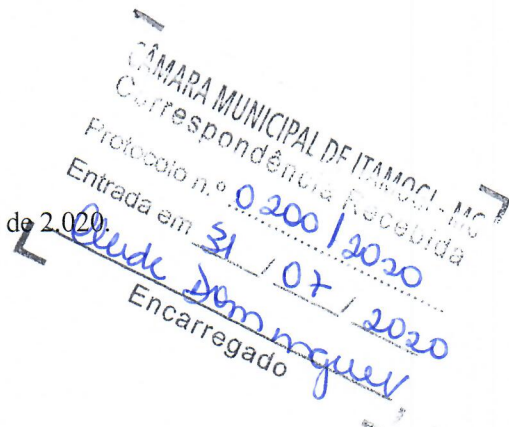 CÂMARA MUNICIPAL DE ITAMOGI - MG
Correspondência Recebida
Protocolo n.º 0200/2020
Entrada em 31/07/2020
de 2.020.
Encarregado